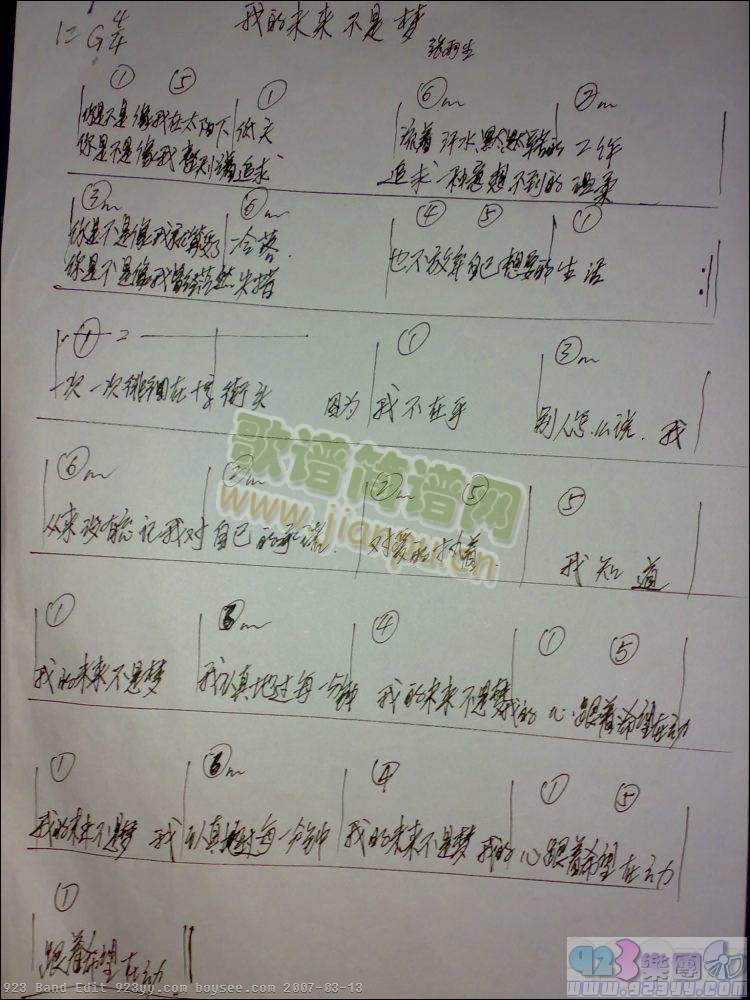 我的未来不是梦
1=G 4/4
张雨生
① ⑤ ① ⑥m ②m
你是不是像我在太阳下低头 流着汗水默默辛苦的工作
你是不是像我整天忙着追求 追求一种意想不到的温柔
③m ⑥m ④ ⑤ ①
你是不是像我就算受了冷落 也不放弃自己想要的生活
你是不是像我曾经茫然失措
① ① ③m
一次一次徘徊在十字街头 因为我不在乎 别人怎么说 我
⑥m ③m ②m ⑤ ⑤
从来没有忘记我对自己的承诺 对爱的执着 我知道
① ③m ④ ① ⑤
我的未来不是梦 我认真地过每一分钟 我的未来不是梦 我的心跟着希望在动
① ③m ④ ① ⑤
我的未来不是梦 我认真地过每一分钟 我的未来不是梦 我的心跟着希望在动
①
跟着希望在动
歌谱简谱网
www.jianpu.cn
923 Band Edit 923yy.com boysee.com 2007-03-13
923樂團
www.923yy.com